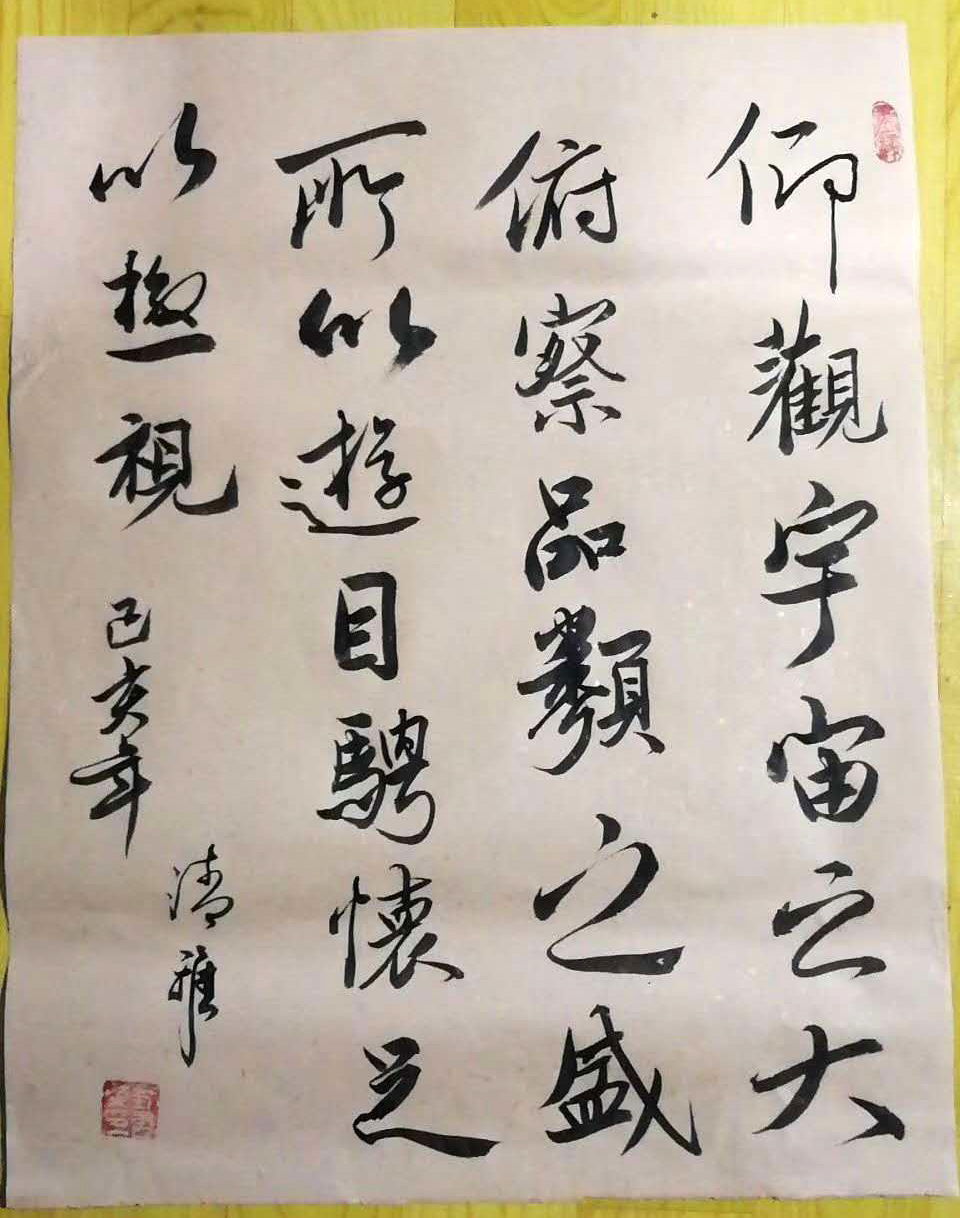 仰觀宇宙之大
俯察品類之盛
所以遊目騁懷足
以極視 己亥年
清雅